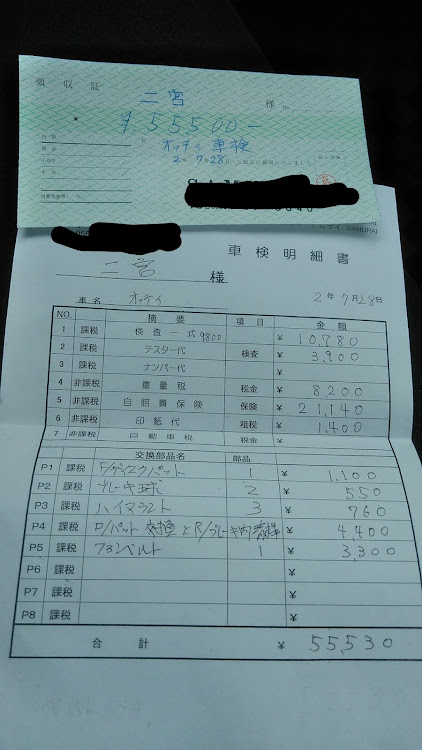 領収証
二宮 様
¥55,500-
オッティ 車検
2. 7.28
SAMURAI
車検明細書
二宮 様
車名 オッティ 2年 7月28日
NO. 摘要 項目 金額
1 課税 検査一式 9800 ¥ 10,780
2 課税 テスター代 検査 ¥ 3,900
3 課税 ナンバー代 ¥
4 非課税 重量税 税金 ¥ 8,200
5 非課税 自賠責保険 保険 ¥ 21,140
6 非課税 印紙代 租税 ¥ 1,400
7 非課税 自動車税 税金 ¥
交換部品名 部品
P1 課税 F/ディスクパット 1 ¥ 1,100
P2 課税 ブレーキ球 2 ¥ 550
P3 課税 ハイマウント 3 ¥ 760
P4 課税 F/パット交換とR/ブレーキ ¥ 4,400
P5 課税 ファンベルト 1 ¥ 3,300
P6 課税 ¥
P7 課税 ¥
P8 課税 ¥
合計 ¥ 55,530